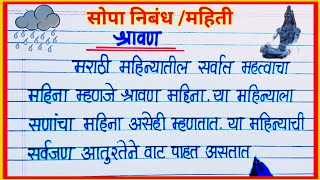 सोपा निबंध /महिती
श्रावण
मराठी महिन्यातील सर्वात महत्वाचा
महिना म्हणजे श्रावण महिना. या महिन्याला
सणांचा महिना असेही म्हणतात. या महिन्याची
सर्वजण आतुरतेने वाट पाहत असतात.